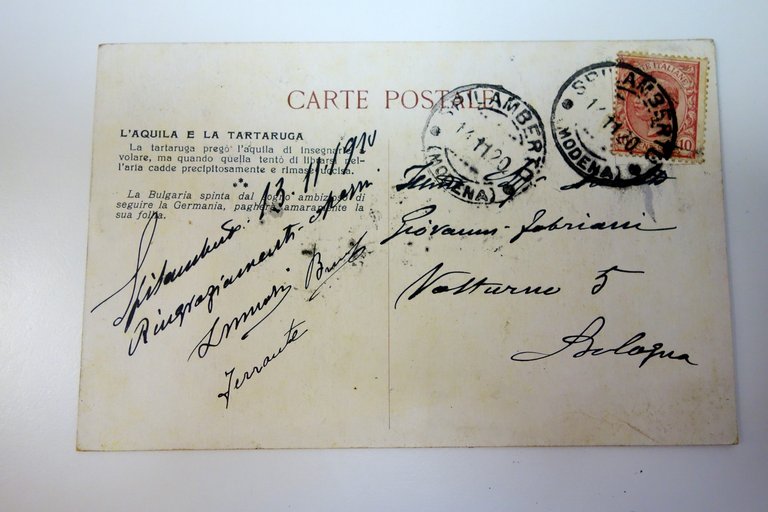 CARTE POSTALE
L'AQUILA E LA TARTARUGA
La tartaruga pregò l'aquila di insegnarle
volare, ma quando quella tentò di librarsi nel-
l'aria cadde precipitosamente e rimase uccisa.
La Bulgaria spinta dal sogno ambizioso di
seguire la Germania, pagherà amaramente la
sua follia.
Spilamberto 13.11.1920
Ringraziamenti
Ferrante
SPILAMBERTO
14.11.20
(MODENA)
SPILAMBERTO
14.11.20
(MODENA)
10
Giovanni Fabriani
Volturno 5
Bologna